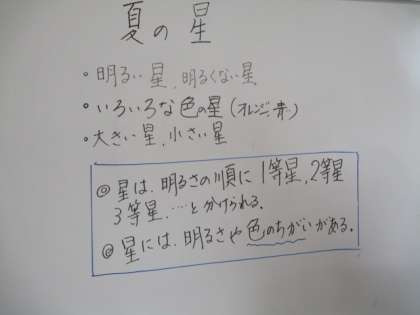 夏の星
・明るい星、明るくない星
・いろいろな色の星(オレンジ、青、)
・大きい星、小さい星
◎星は、明るさの順に1等星、2等星
3等星、…と分けられる。
◎星には、明るさや色のちがいがある。